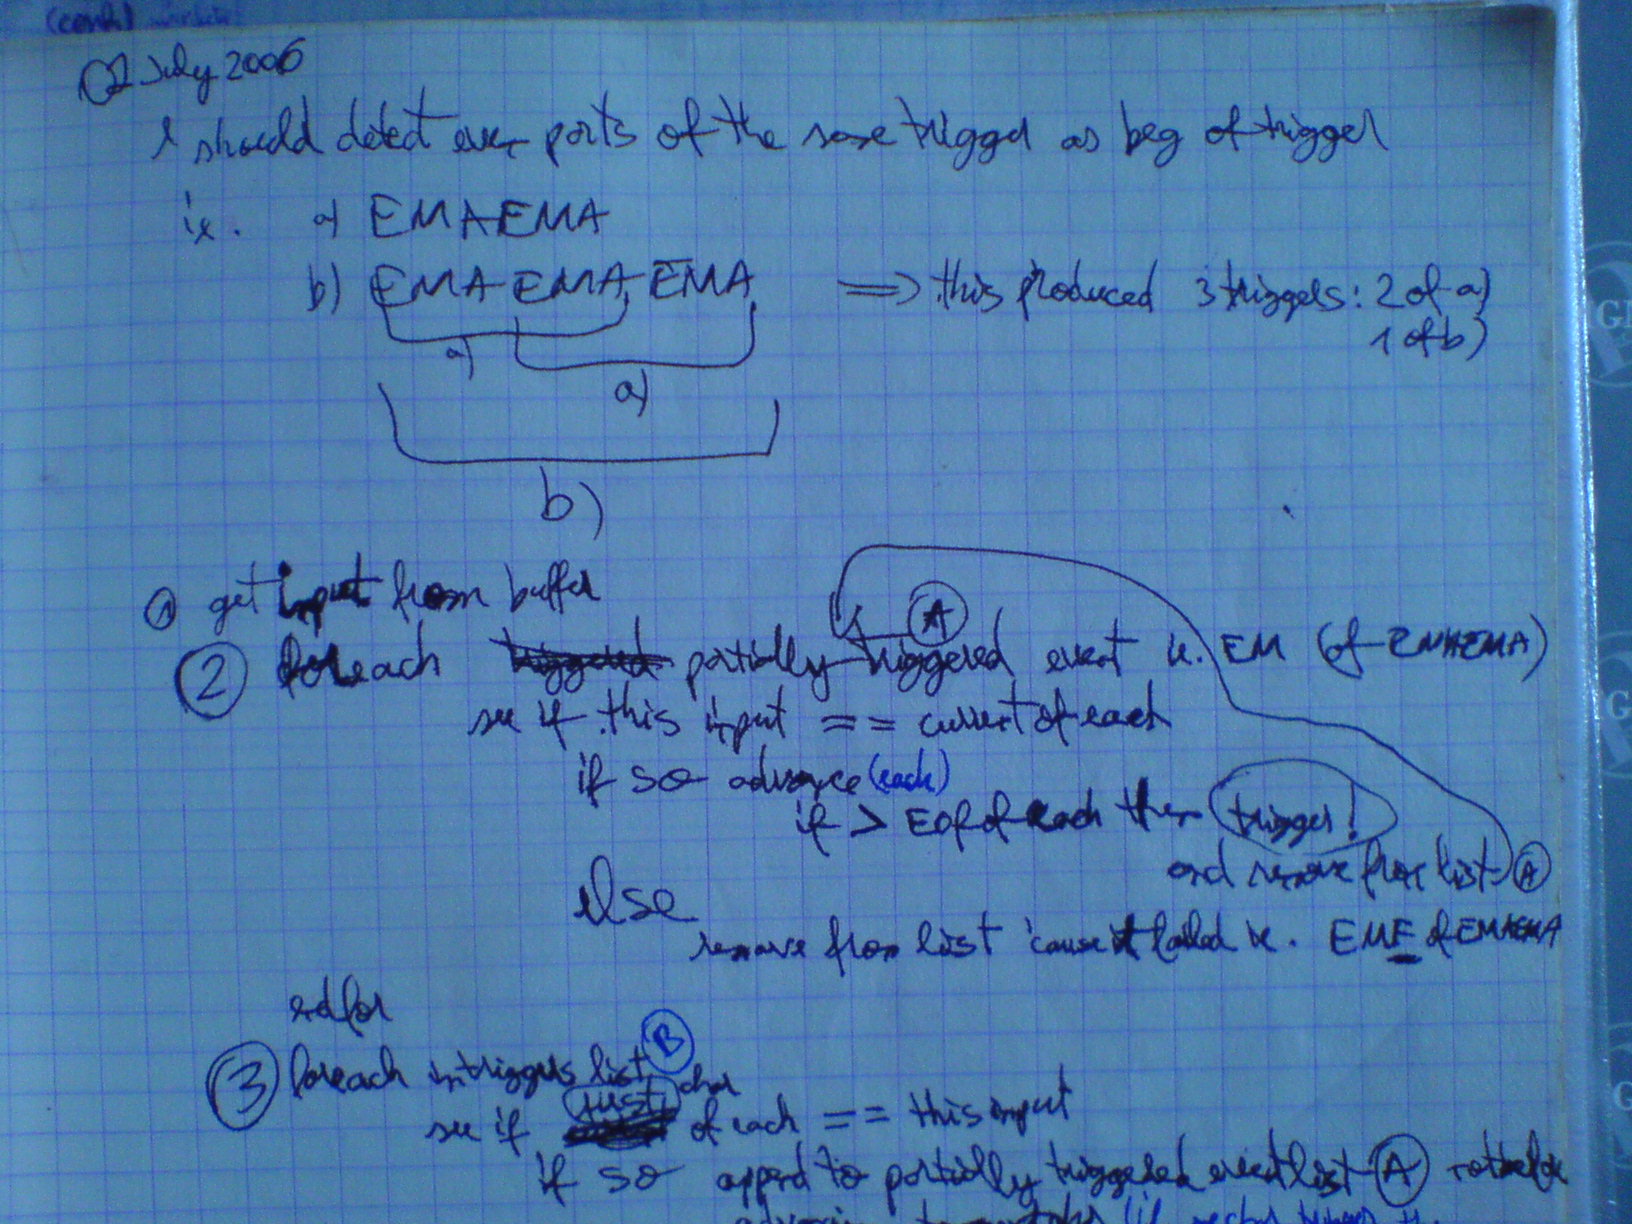 (cont)
02 July 2006
I should detect even parts of the same trigger as beg of trigger
ie. a) EMAEMA
b) EMAEMAEMA => this produced 3 triggers: 2 of a)
1 of b)
a)
a)
b)
1 get input from buffer
A
2 foreach triggered partially triggered event ie. EM (of EMAEMA)
see if this input == current of each
if so advance (each)
if > EOF of each then trigger!
and remove from list A
else
remove from list 'cause it failed ie. EME of EMAEMA
endfor
3 foreach in triggers list B
see if first char of each == this input
if so append to partially triggered event list A